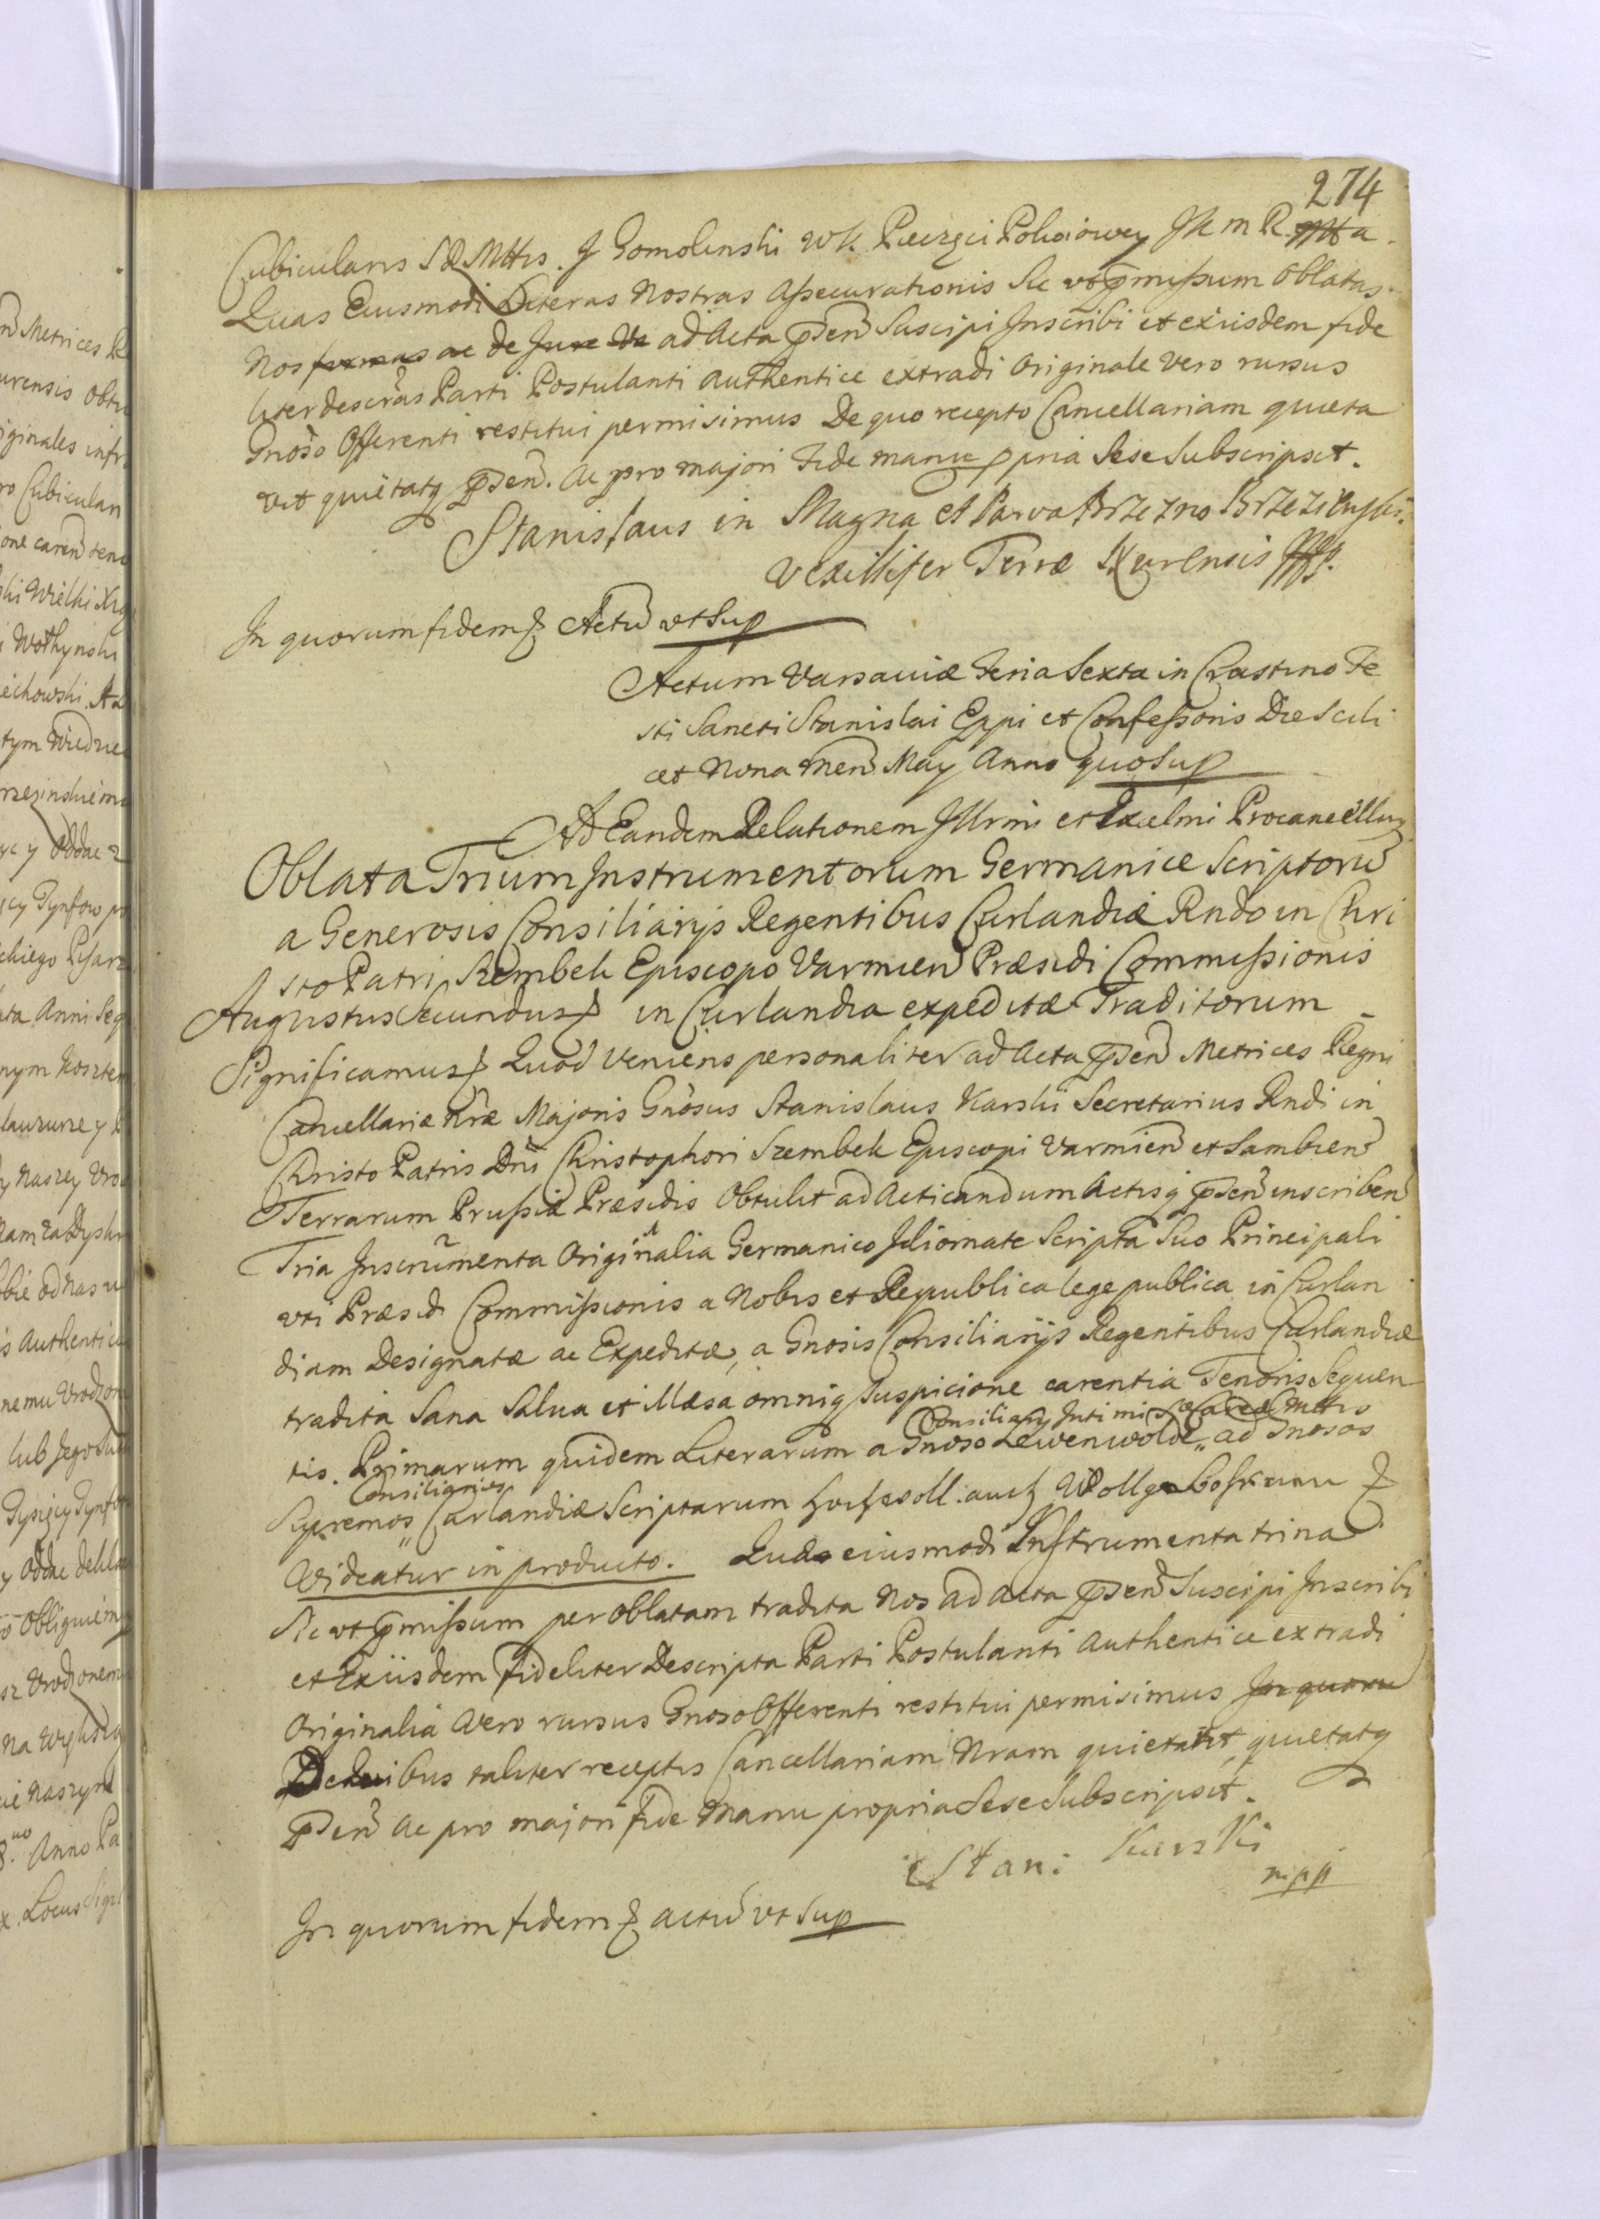 274
Cubicularis S R Mttis. J Gomolinski WK. Pieczęci Pokoiowey JK m R
Quas Eiusmodi Literas Nostras Assecurationis Sic vt p̄missum Oblatas
Nos formas ac de Jure Ve ad Acta p̄sen̄ Suscipi Inscribi et exiisdem fide
liter descrās Parti Postulanti Authentice extradi Originale vero rursus
Gnoso Offerenti restitui permisimus De quo recepto Cancellariam quieta
vit quietatq p̄sen̄. Ac pro majori Fide manu ppria Sese Subscripsit.
Stanislaus in Magna et Parva Brzezno Brzezinski
Vexillifer Terræ
In quorum fidem & Actū vt Sup
Actum Varsaviæ Feria Sexta in Crastino Fe
sti Sancti Stanislai Eppi et Confessoris Die Scili
cet Nona Men̄ May Anno quo Sup
Ad Eandem Relationem Illrmi et Excelmi Procancellary
Oblata Trium Instrumentorum Germanice Scriptorū
a Generosis Consiliarijs Regentibus Curlandiæ Rndo in Chri
sto Patri Szembek Episcopo Varmien̄ Præsidi Commissionis
Augustus Secundus & in Curlandia expeditæ Traditorum
Significamus & Quod Veniens personaliter ad Acta p̄sen̄ Metrices Regni
Cancellariæ Nræ Majoris Gnosus Stanislaus Karski Secretarius Rndi in
Christo Patris Dni Christophori Szembek Episcopi Varmien̄ et Sambien̄
Terrarum Prussiæ Præsidis Obtulit ad Acticandum Actisq p̄sen̄ inscriben̄
Tria Instrumenta Originalia Germanico Idiomate Scripta Suo Principali
vti Præsidi Commissionis a Nobis et Republica lege publica in Curlan
diam Designatæ ac Expeditæ, a Gnosis Consiliarijs Regentibus Curlandiæ
tradita Sana Salva et illæsa omniq Suspicione carentia Tenoris Sequen
Consiliary Intimi Mttis
tis. Primarum quidem Literarum a Gnoso Lewenwolde „ ad Gnosos
Consiliarios
Supremos „ Curlandiæ Scriptarum
Videatur in producto. Quæ eiusmodi Instrumenta trina
Sic vt p̄missum per Oblatam tradita Nos ad Acta p̄sen̄ Suscipi Inscribi
et Exiisdem fideliter Descripta Parti Postulanti Authentice extradi
Originalia Vero rursus Gnoso Offerenti restitui permisimus In quoru
De quibus taliter receptis Cancellariam Nram quietavit, quietatq
p̄sen̄ Ac pro majori fide Manu propria Sese Subscripsit.
Stan: Karski
mpp
In quorum fidem & actū vt Sup